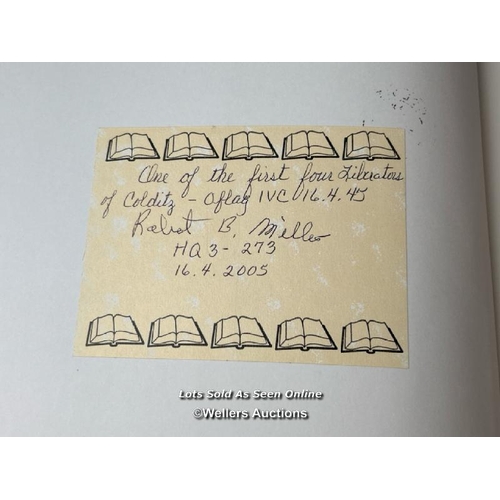 One of the first four Liberators
of Colditz - Oflag IVC 16.4.45
Robert B. Miller
HQ 3 - 273
16.4.2005
Lots Sold As Seen Online
©Wellers Auctions